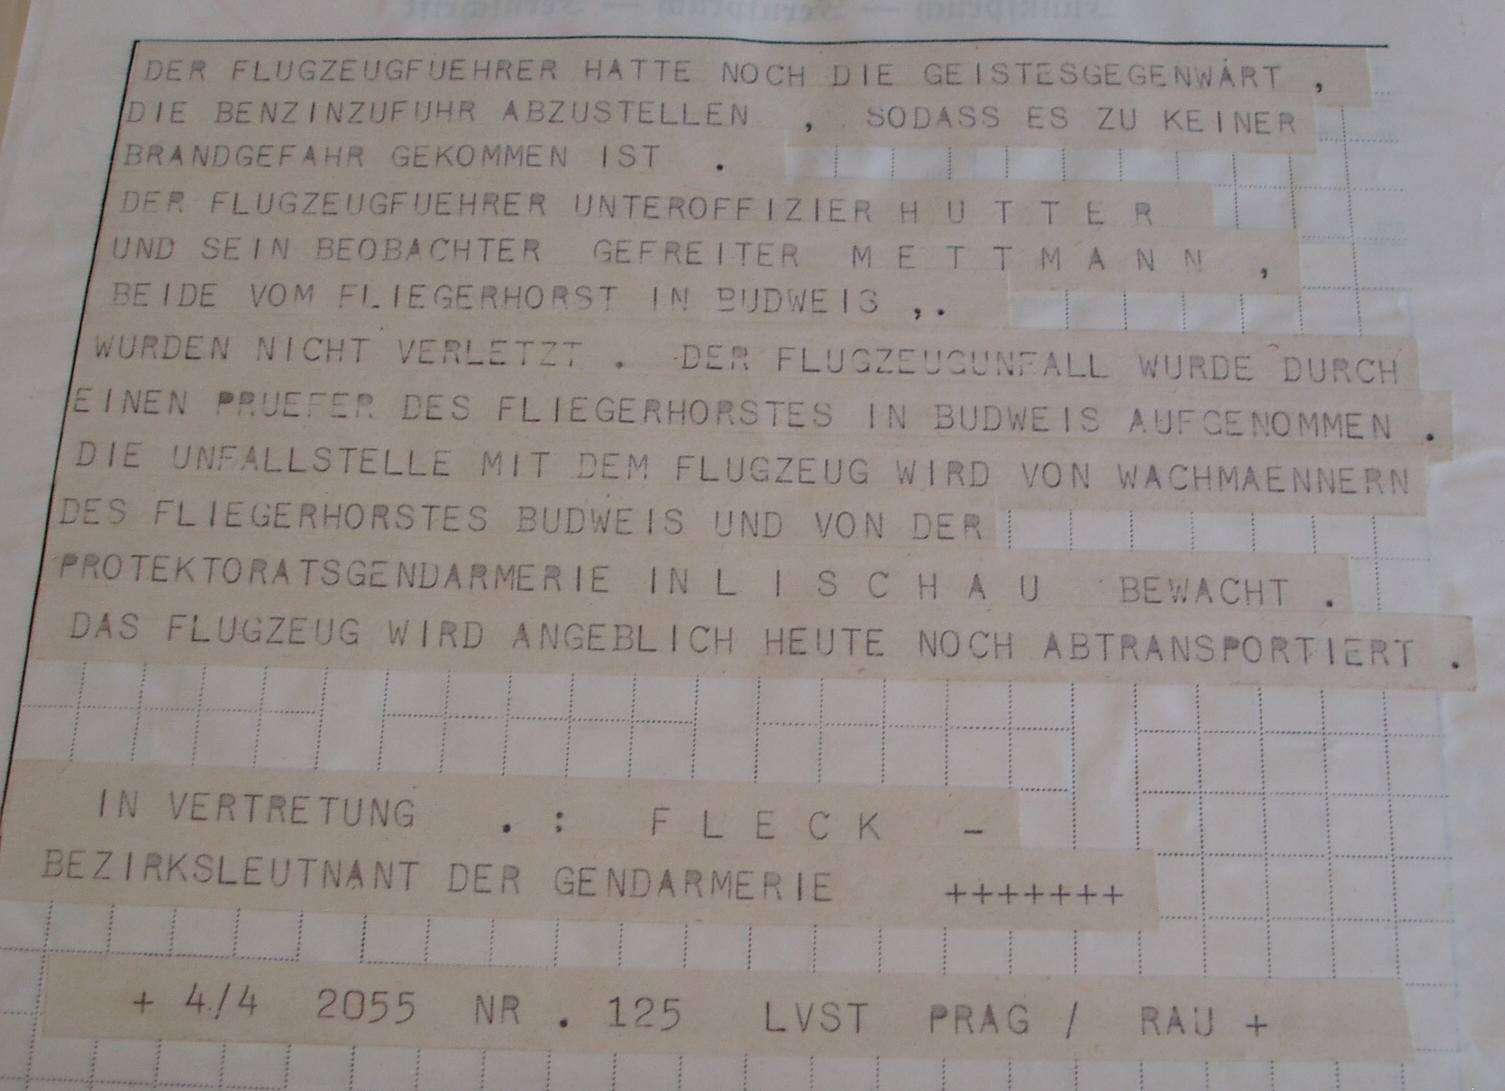 DER FLUGZEUGFUEHRER HATTE NOCH DIE GEISTESGEGENWART ,
DIE BENZINZUFUHR ABZUSTELLEN , SODASS ES ZU KEINER
BRANDGEFAHR GEKOMMEN IST .
DER FLUGZEUGFUEHRER UNTEROFFIZIER H U T T E R
UND SEIN BEOBACHTER GEFREITER M E T T M A N N ,
BEIDE VOM FLIEGERHORST IN BUDWEIS ,.
WURDEN NICHT VERLETZT . DER FLUGZEUGUNFALL WURDE DURCH
EINEN PRUEFER DES FLIEGERHORSTES IN BUDWEIS AUFGENOMMEN .
DIE UNFALLSTELLE MIT DEM FLUGZEUG WIRD VON WACHMAENNERN
DES FLIEGERHORSTES BUDWEIS UND VON DER
PROTEKTORATSGENDARMERIE IN L I S C H A U BEWACHT .
DAS FLUGZEUG WIRD ANGEBLICH HEUTE NOCH ABTRANSPORTIERT .
IN VERTRETUNG . : F L E C K -
BEZIRKSLEUTNANT DER GENDARMERIE +++++++
+ 4/4 2055 NR . 125 LVST PRAG / RAU +